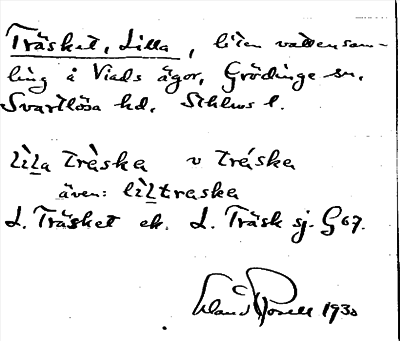 Träsket, Lilla, liten vattensam-
ling å Viads ägor, Grödinge sn,
Svartlösa hd, Sthlms l.
lìla tràska v tráska
även: lìltraska
L. Träsket ek. L. Träsk sj. G 67.
1930